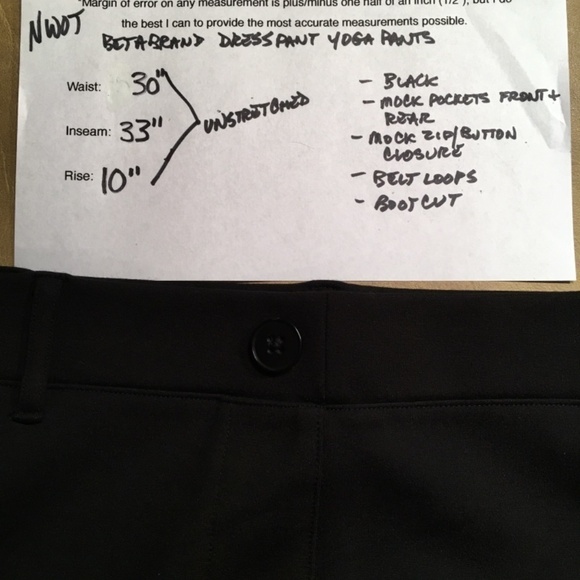 *Margin of error on any measurement is plus/minus one half of an inch (1/2"), but I do
the best I can to provide the most accurate measurements possible.
NWOT
BETABRAND DRESS PANT YOGA PANTS
Waist: 30"
Inseam: 33"
Rise: 10"
UNSTRETCHED
- BLACK
- MOCK POCKETS FRONT +
REAR
- MOCK ZIP/BUTTON
CLOSURE
- BELT LOOPS
- BOOT CUT